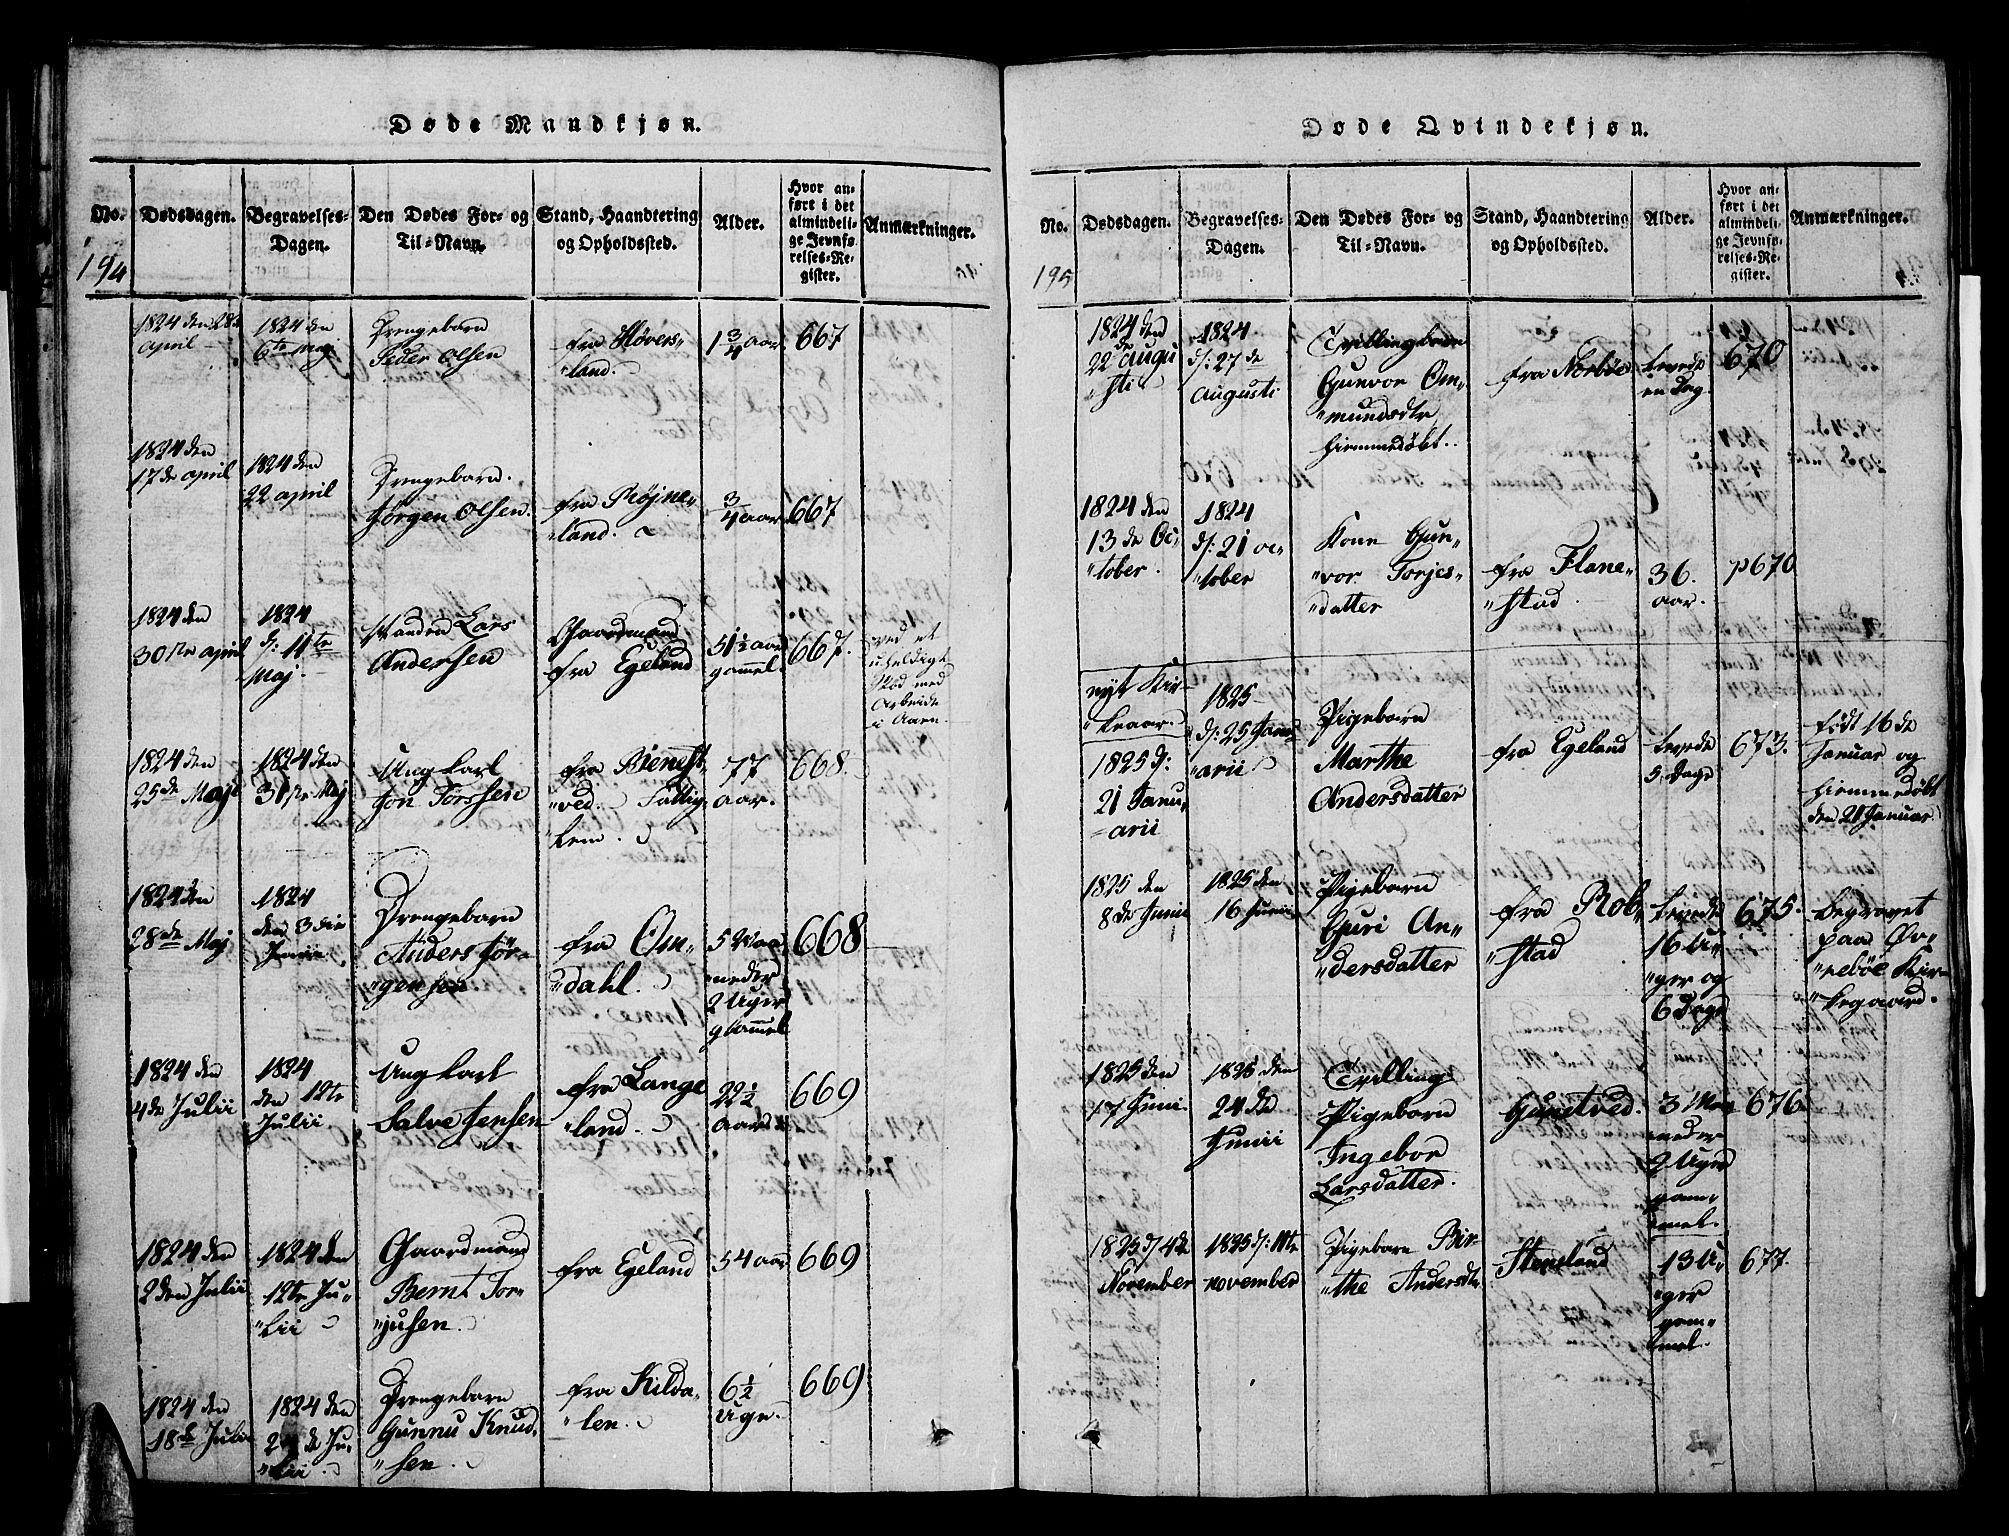 Døde Mandkjøn.
No.
Dødsdagen.
Begravelses-
Dagen.
Den Dødes For- og
Til-Navn.
Stand, Haandtering
og Opholdssted.
Alder.
Hvor an-
ført i det
almindeli-
ge Jevnfø-
relses-Re-
gister.
Anmærkninger.
194
1824 den 28de
April
1824 den
6te Maj
Drengebarn
Peder Olsen
fra Høvers-
land.
1 3/4 aar
667
1824 den
17de April
1824 den
22 April
Drengebarn.
Jørgen Olsen.
fra Røjne-
land.
3/4 aar
667
1824 den
30te April
1824
d: 11te
Maj.
Lars
Andersen
Gaardmand
fra Egeland
51 1/2 aar
gammel
667.
ved et
uheldigt
Stød med
Arbeide
i Aaen
1824 den
25de Maji
1824 den
31te Maj
Ungkarl
Jon Torssen
fra Bienest-
ved. Fattig-
lem.
77
aar.
668.
1824 den
28de Maj
1824
den 3die
Junii
Drengebarn
Anders Jør-
gensen
fra Om-
dahl.
5 Maa-
neder
2 Uger
gammel
668
1824 den
4de Julii
1824
den 12te
Julii.
Ungkarl
Salve Jensen
fra Lange
land.
22 1/2
aar
669
1824 den
2den Julii
1824 den
12te Ju-
lii
Gaardmand
Bernt Tor-
jusen.
fra Egeland
54 aar
669
1824 den
18de Julii
1824 den
24de Ju-
lii.
Drengebarn
Gunnu Knud-
sen.
fra Kilda-
len.
6 1/2
Uge.
669
Døde Qvindekjøn.
No.
Dødsdagen.
Begravelses-
Dagen.
Den Dødes For- og
Til-Navn.
Stand, Haandtering
og Opholdssted.
Alder.
Hvor an-
ført i det
almindeli-
ge Jevnfø-
relses-Re-
gister.
Anmærkninger.
195
1824 den
22de Augu
sti
1824
d: 27de
Augusti
Tvillingbarn
Gunvor Om-
mundsdtr
hiemmedøbt.
fra Norbøe
levede
en Dag.
670
1824 den
13de Oc-
tober.
1824
d: 21 oc-
tober
Kone Gun-
vor Torjes-
datter
fra Flane-
stad.
36.
aar.
p670
nyt Kir-
keaar.
1825 d:
21 Janu-
arii
1825
d: 25 Janu-
arii.
Pigebarn
Marthe
Andersdatter
fra Egeland
levede
5 Dage
673.
født 16de
Januar og
hiemmedøbt
den 21 Januar.
1825 den
8de Junii
1825 den
16 Junii
Pigebarn
Guri An-
dersdatter
fra Rob-
stad
levede
16 U-
ger og
6 Dage
675.
begravet
paa Øv-
rebøe Kir-
kegaard.
1825 den
17 Junii.
1825 den
24de
Junii
Tvilling
Pigebarn
Ingebor
Larsdatter.
Gunstved.
3 Maa-
neder
2 Uger
gam-
mel.
676
1825 d/4de
November
1825 d: 11te
november
Pigebarn Bir-
the Andersdtr
Steusland
13 U-
ger
gam-
mel.
677.